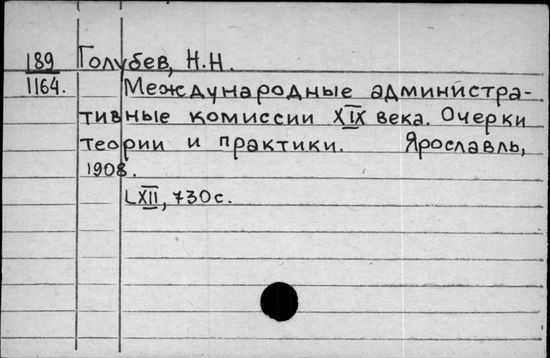 189 Голубев, Н.Н.
1164. Международные администра-
тивные комиссии XIX века. Очерки
теории и практики. Ярославль,
1908.
LXII, 730с.